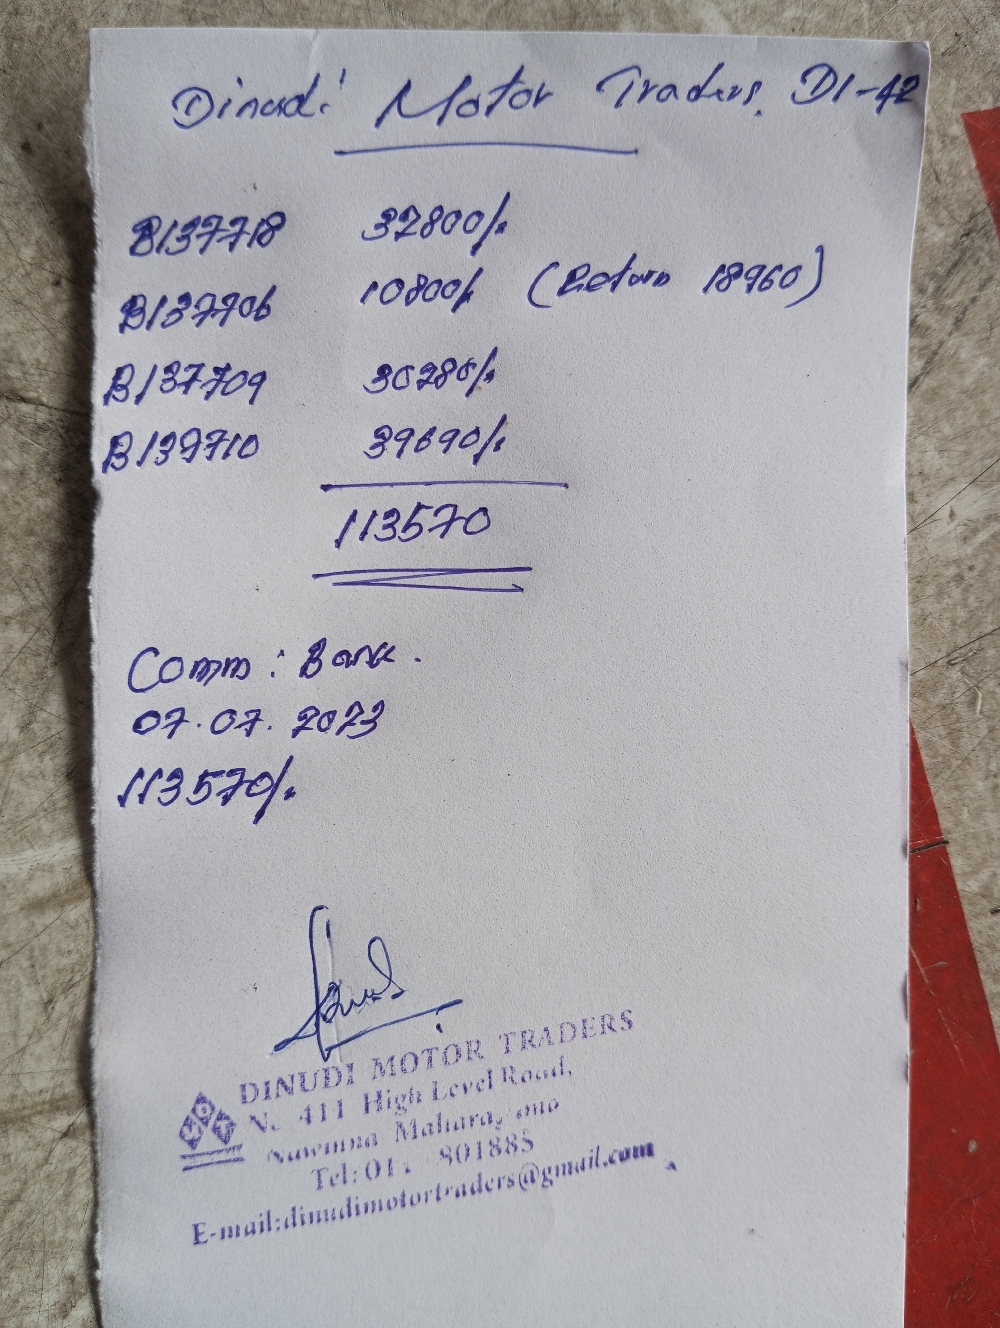 Dinudi Motor Traders. DI-42
B137718 32800/.
B137706 10800/. (Return 18960)
B137709 30280/.
B137710 39690/.
113570
Comm: Bank.
07.07.2023
113570/.
DINUDI MOTOR TRADERS
411 High Level Road,
Tel: 801885
E-mail:dinudimotortraders@gmail.com